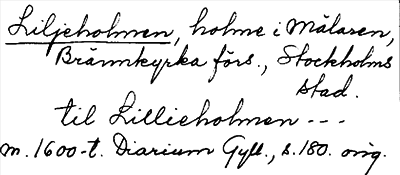 Liljeholmen, holme i Mälaren,
Brännkyrka förs., Stockholms
stad.
til Lillieholmen ---
m. 1600-t. Diarium Gyll., s. 180. orig.